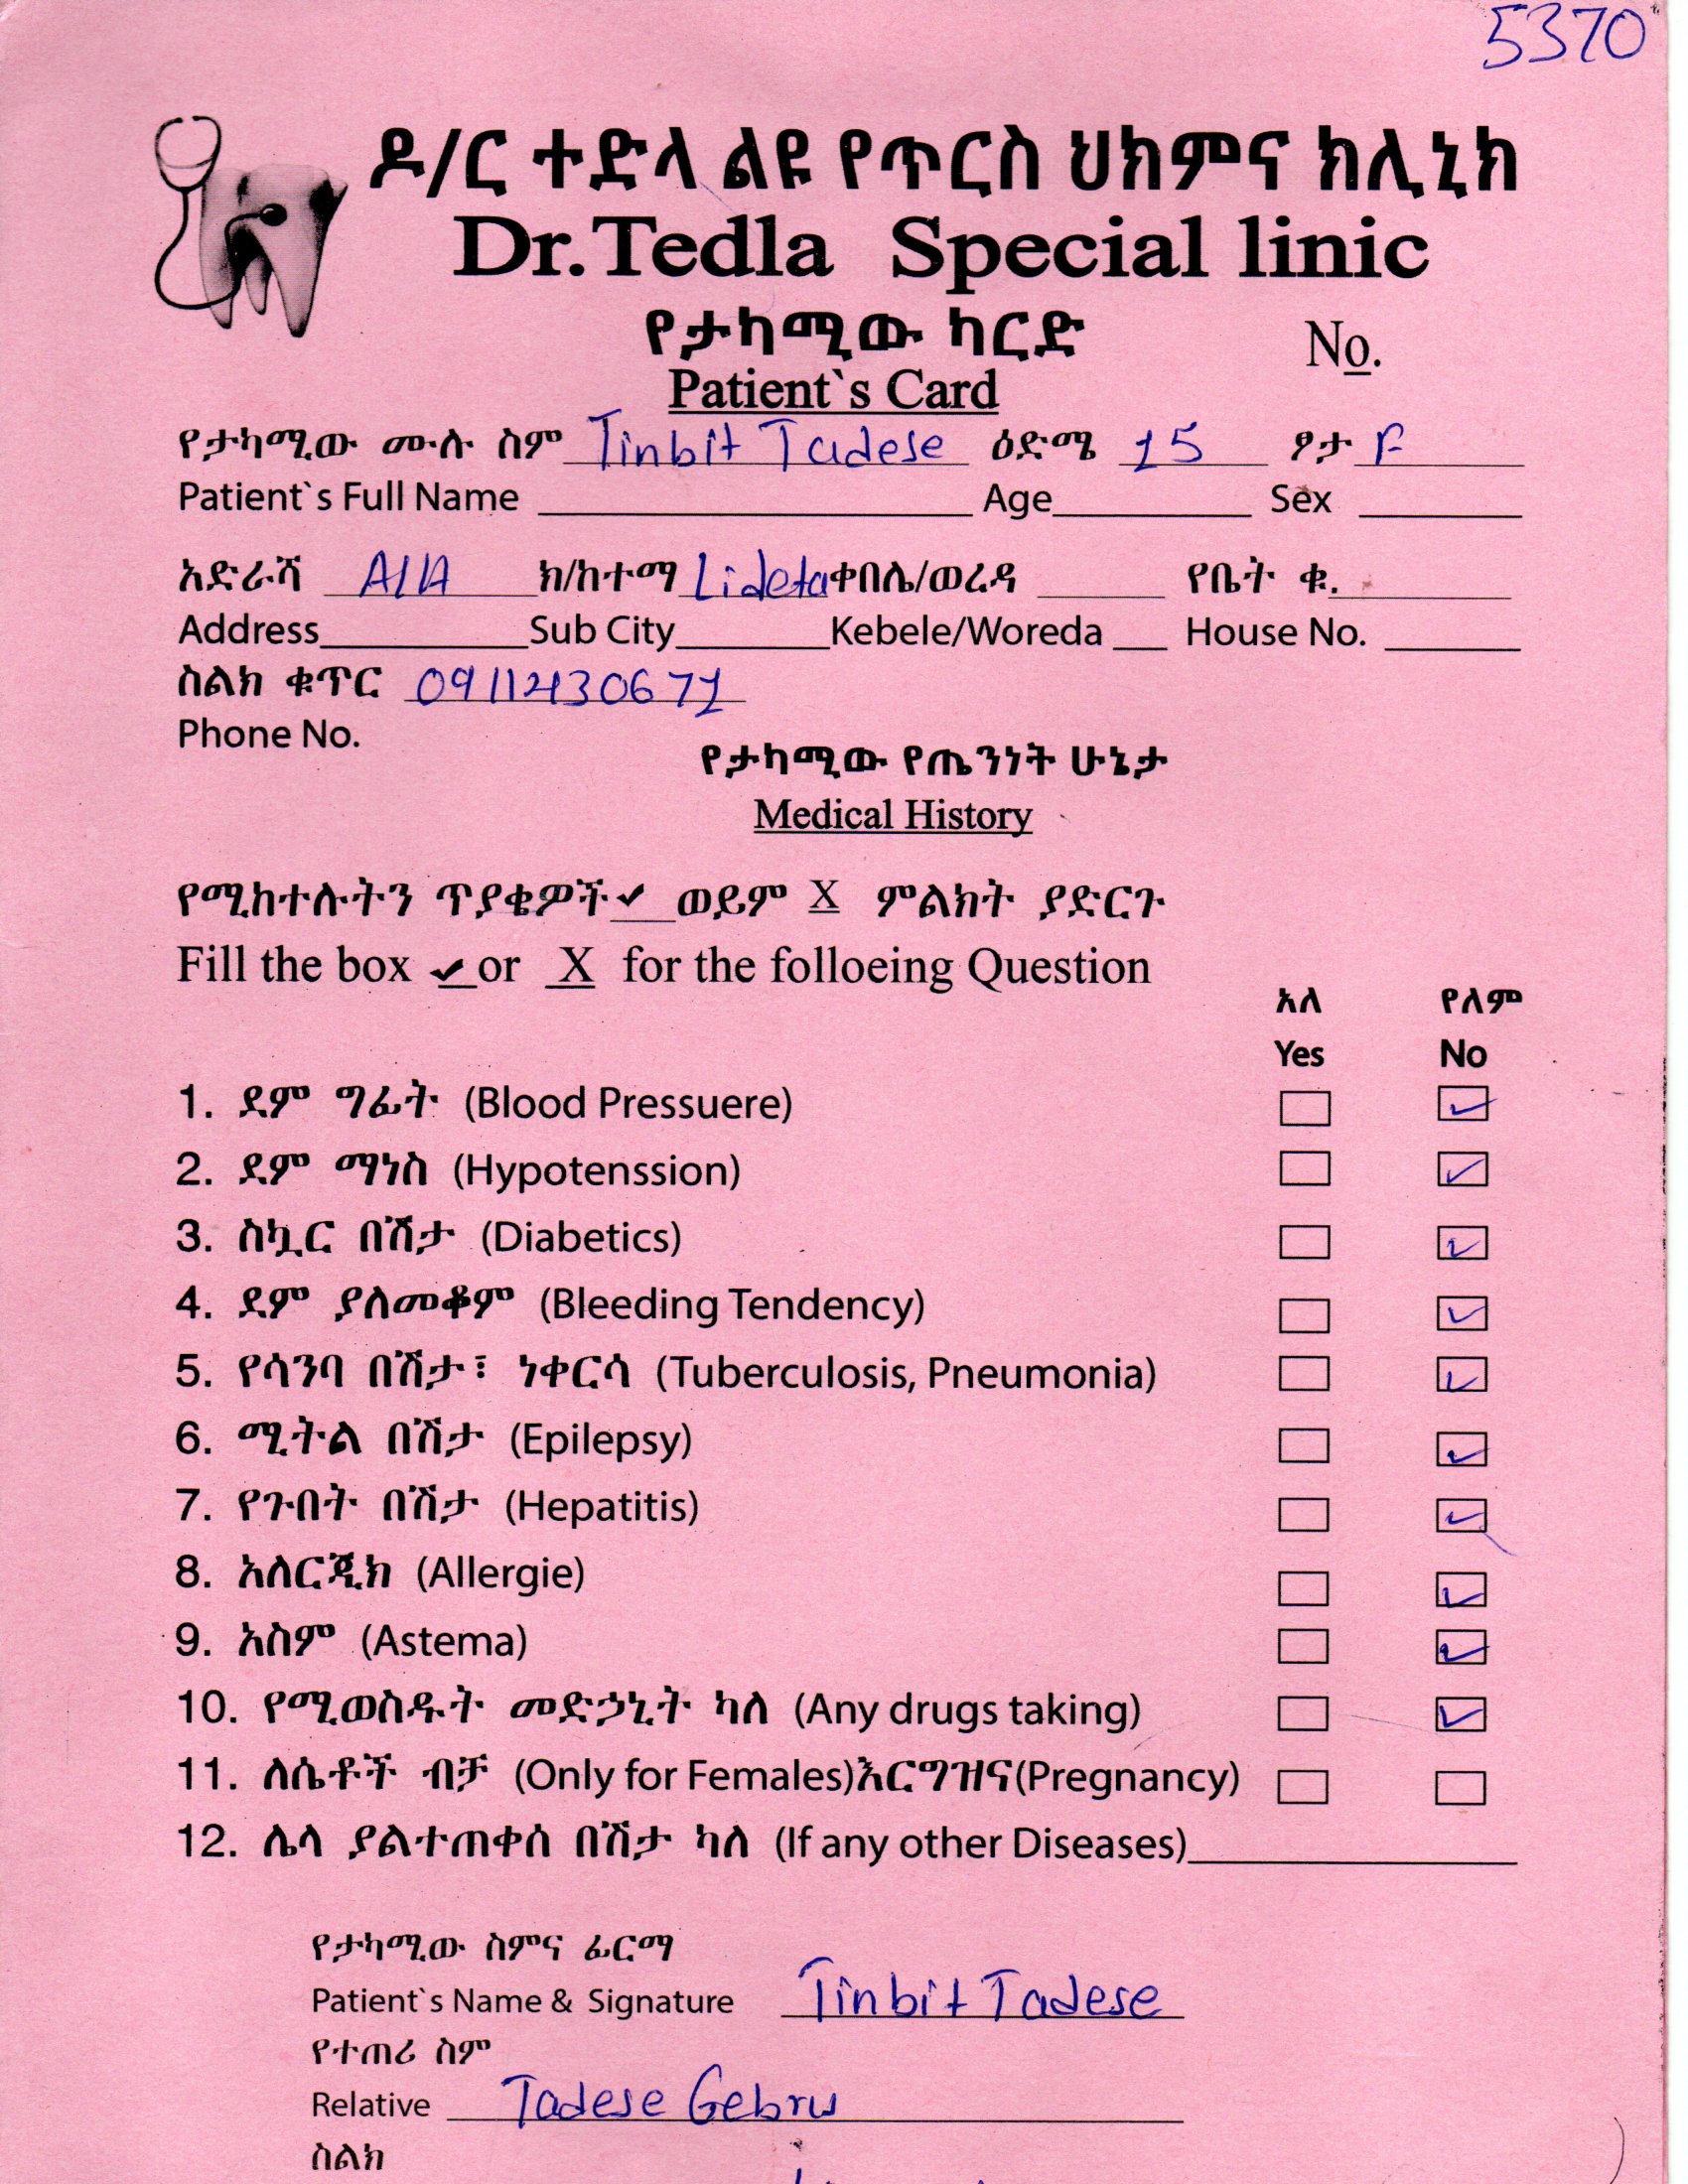 5370
ዶ/ር ተድላ ልዩ የጥርስ ህክምና ክሊኒክ
Dr.Tedla Special linic
የታካሚው ካርድ
No.
Patient`s Card
የታካሚው ሙሉ ስም Tinbit Tadese ዕድሜ 15 ፆታ F
Patient`s Full Name Age Sex
አድራሻ A/A ክ/ከተማ Lideta ቀበሌ/ወረዳ የቤት ቁ.
Address Sub City Kebele/Woreda House No.
ስልክ ቁጥር
Phone No.
የታካሚው የጤንነት ሁኔታ
Medical History
የሚከተሉትን ጥያቄዎች ✓ ወይም X ምልክት ያድርጉ
Fill the box ✓ or X for the folloeing Question
አለ የለም
Yes No
1. ደም ግፊት (Blood Pressuere) ✓
2. ደም ማነስ (Hypotenssion) ✓
3. ስኳር በሽታ (Diabetics) ✓
4. ደም ያለመቆም (Bleeding Tendency) ✓
5. የሳንባ በሽታ፣ ነቀርሳ (Tuberculosis, Pneumonia) ✓
6. ሚትል በሽታ (Epilepsy) ✓
7. የጉበት በሽታ (Hepatitis) ✓
8. አለርጂክ (Allergie) ✓
9. አስም (Astema) ✓
10. የሚወስዱት መድኃኒት ካለ (Any drugs taking) ✓
11. ለሴቶች ብቻ (Only for Females)እርግዝና(Pregnancy)
12. ሌላ ያልተጠቀሰ በሽታ ካለ (If any other Diseases)
የታካሚው ስምና ፊርማ
Patient`s Name & Signature Tinbit Tadese
የተጠሪ ስም
Relative Tadese Gebru
ስልክ